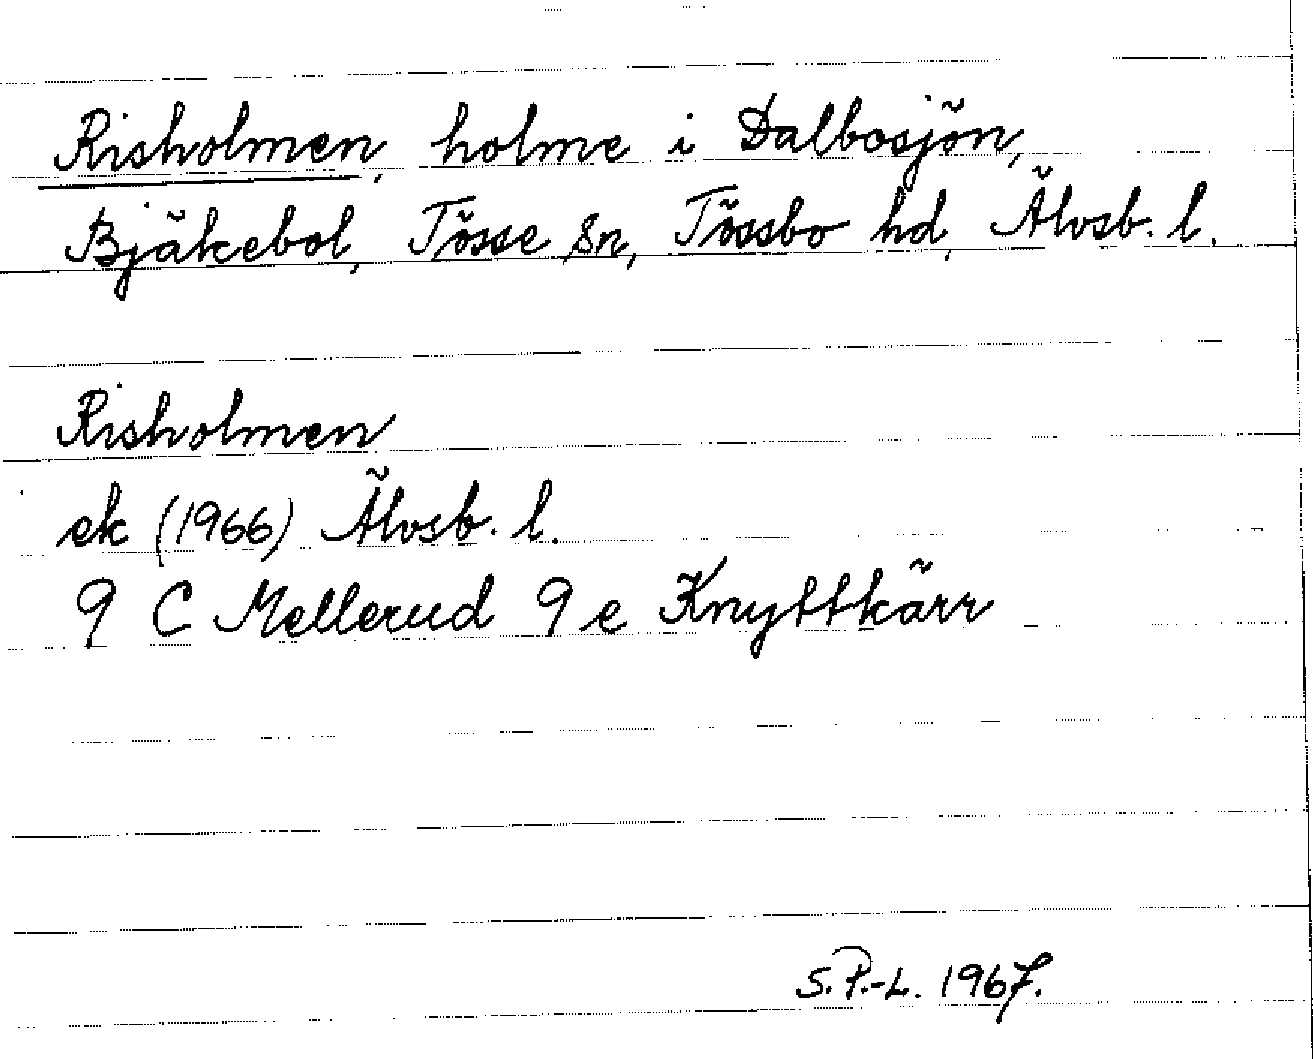 Risholmen, holme i Dalbosjön,
Bjäkebol, Tösse sn, Tössbo hd, Älvsb. l.
Risholmen
ek (1966) Älvsb. l.
9 C Mellerud 9 e Knyttkärr
S.P.-L. 1967.